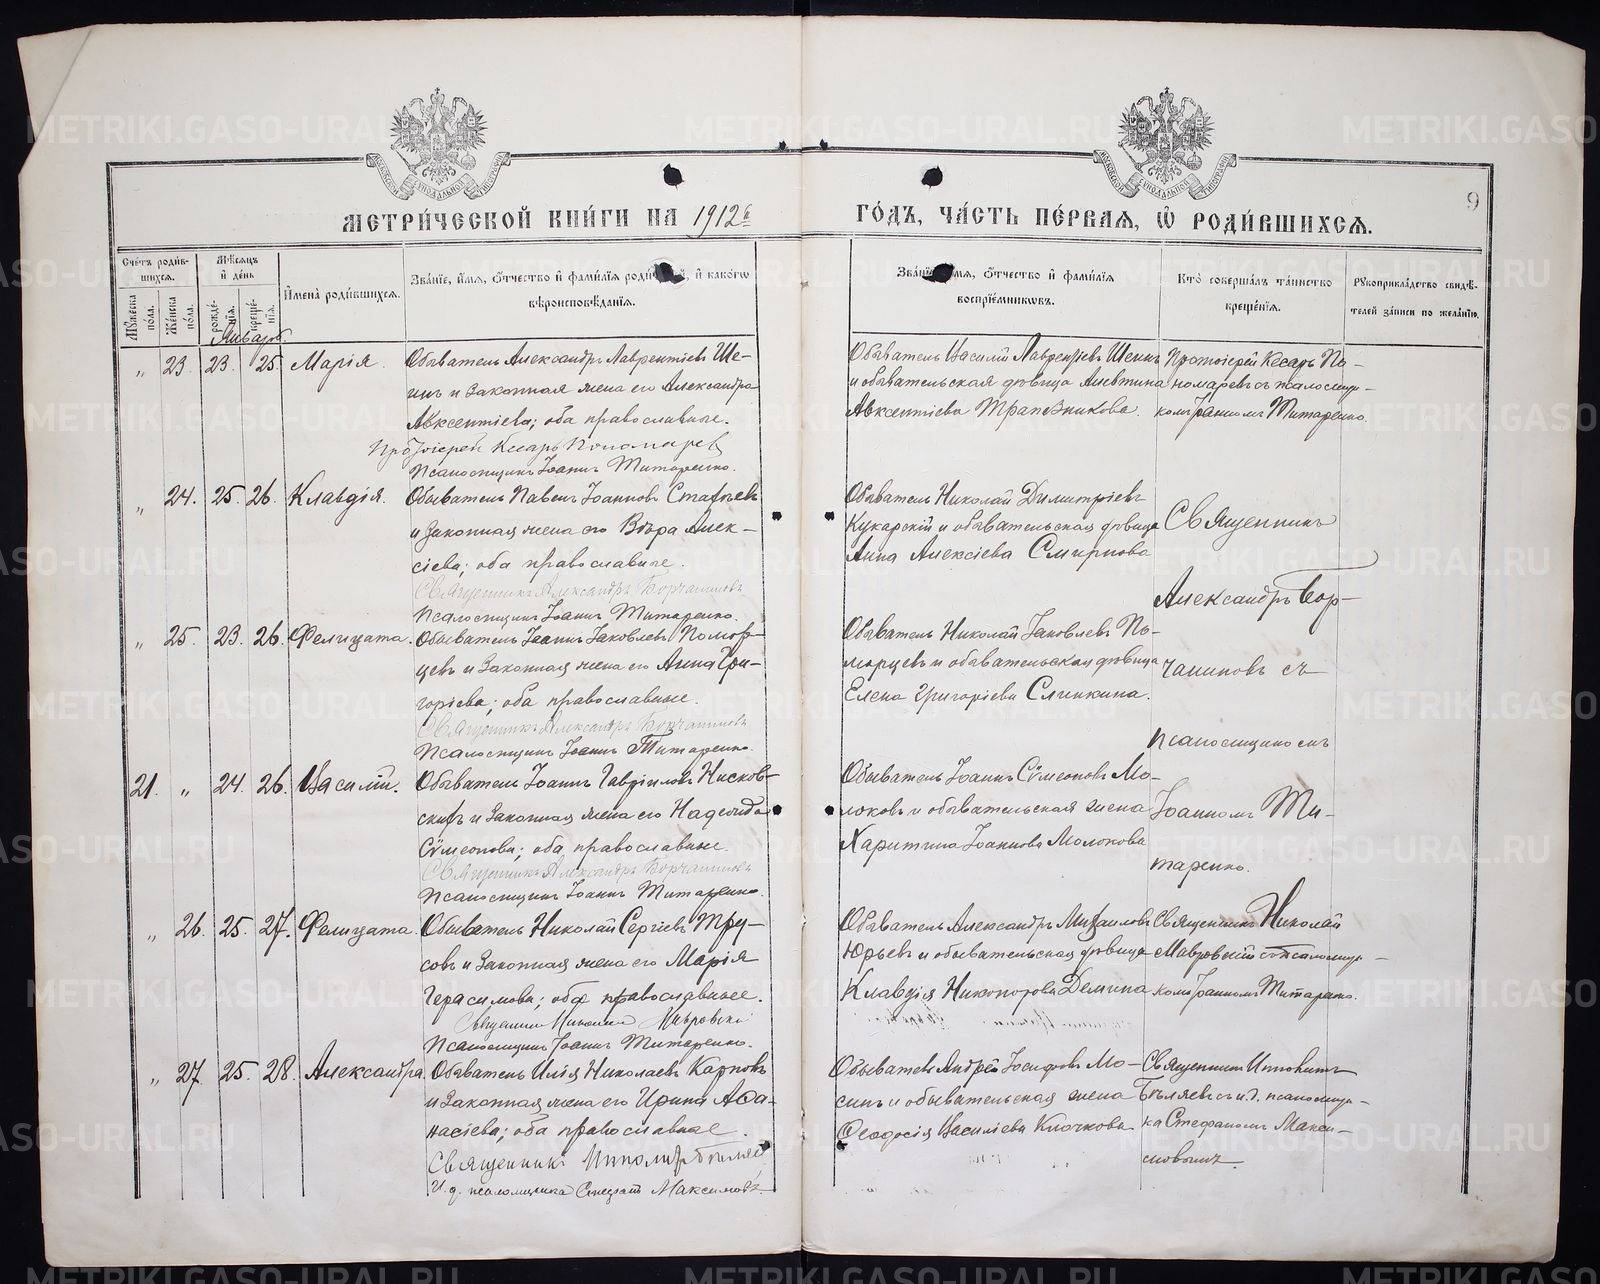 METRIKI.GASO-URAL.RU
МЕТРИ́ЧЕСКОЙ КНИ́ГИ НА 1912 й
ГО́ДЪ, ЧА́СТЬ ПЕ́РВАЯ, Ѡ РОДИ́ВШИХСЯ.
9
Сче́тъ роди́в-
шихся.
Мꙋ́жеска по́ла.
Же́нска по́ла.
Мѣ́сяцъ и де́нь
рожде́нїя.
креще́нїя.
Имена̀ роди́вшихся.
Зва́нїе, и́мя, ѻ́тчество и фами́лїя роди́телей, и како́гѡ
вѣроисповѣ́данїя.
Зва́нїе, и́мя, ѻ́тчество и фами́лїя
воспрїе́мниковъ.
Кто̀ соверша́лъ та́инство
креще́нїя.
Рꙋкоприкла́дство свидѣ́-
телей за́писи по жела́нїю.
Январь
„ 23. 23. 25. Марія.
Обыватель Александръ Лаврентіевъ Ше-
инъ и законная жена его Александра
Авксентіева; оба православные.
Протоіерей Кесарь Пономаревъ
Псаломщикъ Іоаннъ Титаренко.
Обыватель Василій Лаврентіевъ Шеинъ
и обывательская дѣвица Алевтина
Авксентіева Трапезникова.
Протоіерей Кесарь По-
номаревъ съ псаломщи-
комъ Іоанномъ Титаренко.
„ 24. 25. 26. Клавдія.
Обыватель Павелъ Іоанновъ
и законная жена его Вѣра Алек-
сіева; оба православные.
Священникъ Александръ Борчаниновъ
Псаломщикъ Іоаннъ Титаренко.
Обыватель Николай Димитріевъ
Кукарскій и обывательская дѣвица
Анна Алексіева Смирнова
Священникъ
Александръ Бор-
чаниновъ съ
псаломщикомъ
Іоанномъ Ти-
таренко.
„ 25. 23. 26. Фелицата.
Обыватель Іоаннъ Іаковлевъ Помор-
цевъ и законная жена его Анна Гри-
горіева; оба православные.
Священникъ Александръ Борчаниновъ
Псаломщикъ Іоаннъ Титаренко.
Обыватель Николай Іаковлевъ По-
морцевъ и обывательская дѣвица
Елена Григоріева Слинкина.
21. „ 24. 26. Василій.
Обыватель Іоаннъ Гавріиловъ Нисков-
скихъ и законная жена его Надежда
Сѵмеонова; оба православные.
Священникъ Александръ Борчаниновъ
Псаломщикъ Іоаннъ Титаренко.
Обыватель Іоаннъ Сѵмеоновъ Мо-
локовъ и обывательская жена
Харитина Іоаннова Молокова
„ 26. 25. 27. Фелицата.
Обыватель Николай Сергіевъ Тру-
совъ и законная жена его Марія
Герасимова; оба православные.
Священникъ Николай Мавровскій
Псаломщикъ Іоаннъ Титаренко.
Обыватель Александръ Михаиловъ
Юрьевъ и обывательская дѣвица
Клавдія Никонорова Демина
Священникъ Николай
Мавровскій съ псаломщи-
комъ Іоанномъ Титаренко.
„ 27. 25. 28. Александра.
Обыватель Илія Николаевъ Карповъ
и законная жена его Ирина Аѳа-
насіева; оба православные.
Священникъ Ипполитъ Бѣляевъ
И. д. псаломщика Стефанъ Максимовъ.
Обыватель Андрей Іосифовъ Мо-
синъ и обывательская жена
Ѳеодосія Василіева Клочкова
Священникъ Ипполитъ
Бѣляевъ съ и. д. псаломщи-
ка Стефаномъ Макси-
мовымъ.